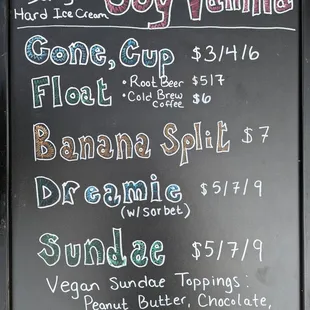 Hard Ice Cream Soy Vanilla
Cone, Cup $3/4/6
Float • Root Beer $5/7
• Cold Brew Coffee $6
Banana Split $7
Dreamie $5/7/9
(w/Sorbet)
Sundae $5/7/9
Vegan Sundae Toppings:
Peanut Butter, Chocolate,